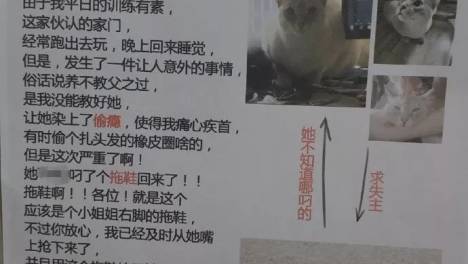 由于我平日的训练有素，
这家伙认的家门，
经常跑出去玩，晚上回来睡觉，
但是，发生了一件让人意外的事情，
俗话说养不教父之过，
是我没能教好她，
让她染上了偷瘾，使得我痛心疾首，
有时偷个扎头发的橡皮圈啥的，
但是这次严重了啊！
她 叼了个拖鞋回来了！！
拖鞋啊！！各位！就是这个
应该是个小姐姐右脚的拖鞋，
不过你放心，我已经及时从她嘴
上抢下来了，
她不知道哪叼的
求失主